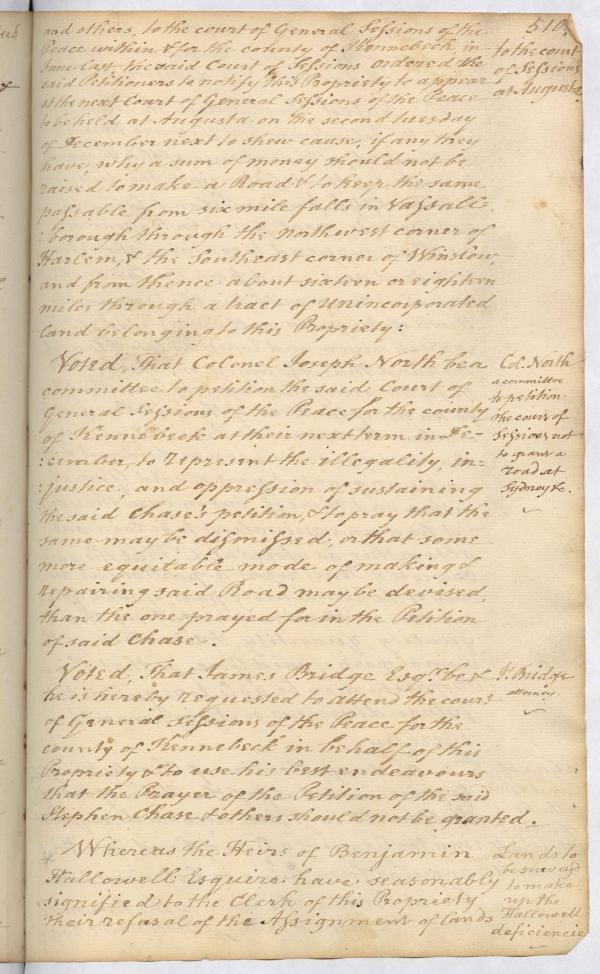 510.
and others, to the court of General Sessions of the
Peace within & for the county of Kennebeck, in
June last the said Court of Sessions ordered the
said Petitioners to notify this Propriety to appear
at the next Court of General Sessions of the Peace
to be held at Augusta on the second tuesday
of December next to shew cause, if any they
have, why a sum of money should not be
raised to make a Road & to keep the same
passable from six mile falls in Vassall=
:borough through the northwest corner of
Harlem, & the Southeast corner of Winslow,
and from thence about sixteen or eighteen
miles through a tract of Unincorporated
land belonging to this Propriety:
to the court
of Sessions
at Augusta.
Voted, That Colonel Joseph North be a
committee to petition the said Court of
General Sessions of the Peace for the county
of Kennebeck at their next term in De-
:cember, to represent the illegality, in=
:justice, and oppression of sustaining
the said Chase's petition, & to pray that the
same may be dismissed, or that some
more equitable mode of making &
repairing said Road may be devised,
than the one prayed for in the Petition
of said Chase.
Col. North
a committee
to petition
the court of
Sessions not
to grant a
road at
Sydney &c.
Voted, That James Bridge Esqr. be &
he is hereby requested to attend the court
of General Sessions of the Peace for the
county of Kennebeck in behalf of this
Propriety & to use his best endeavours
that the Prayer of the Petition of the said
Stephen Chase & others should not be granted.
Js. Bridge
attorney.
Whereas the Heirs of Benjamin
Hallowell Esquire have seasonably
signified to the Clerk of this Propriety
their refusal of the Assignment of lands
Lands to
be survey'd
to make
up the
Hallowell
deficiencie